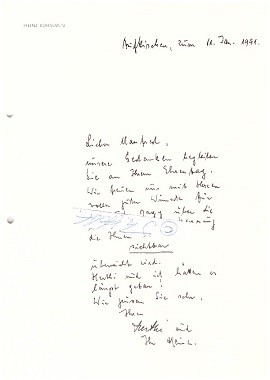 Aufkirchen, zum 11. Jan. 1991.
Lieber Manfred,
unsere Gedanken begleiten
Sie an Ihrem Ehrentag.
Wir freuen uns mit Ihnen
voller guter Wünsche für
Sie und sagen über die
die Ihnen
sichtbar
überreicht wird.
Hertha und ich hätten es
längst getan!
Wir grüssen Sie sehr.
Ihre
Hertha und
Ihr Heinz.